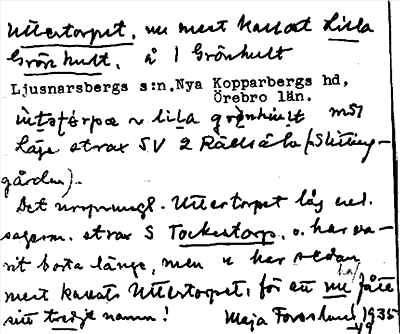 Uttertorpet, nu mest kallat Lilla
Grönhult, å 1 Grönhult
Ljusnarsbergs s:n, Nya Kopparbergs hd,
Örebro län.
lila
Läge strax SV 2 Rällsälv
gården).
Det ursprungl. Uttertorpet låg enl.
sagesm. strax S Tockertorp, o. har va-
rit borta länge, men u har sedan
mest kallats Uttertorpet, för att nu ha fått
sitt tredje namn! Maja Forsslund 1935
49